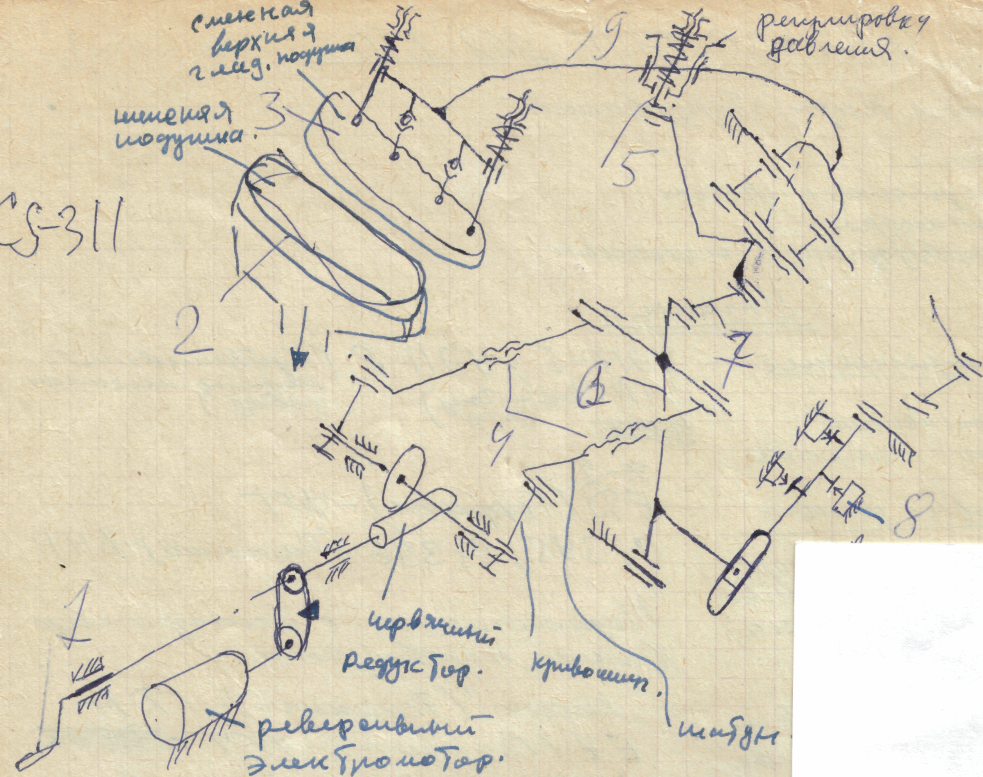 сменная
верхняя
глад. подушка
нижняя
подушка.
3
19
регулировку
давления.
5
CS-311
2
7
6
4
8
1
червячный
редуктор.
кривошип.
шатун
реверсивный
электромотор.